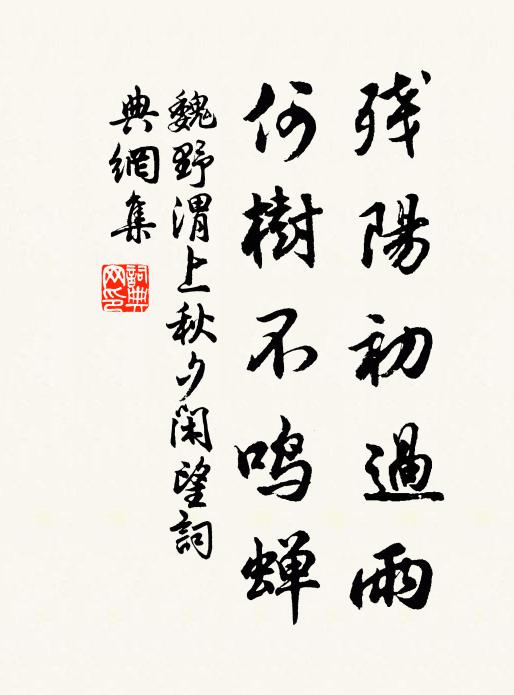 残陽初過雨
何樹不鳴蝉
魏野渭上秋夕閑望詞
典網集
詞典网印